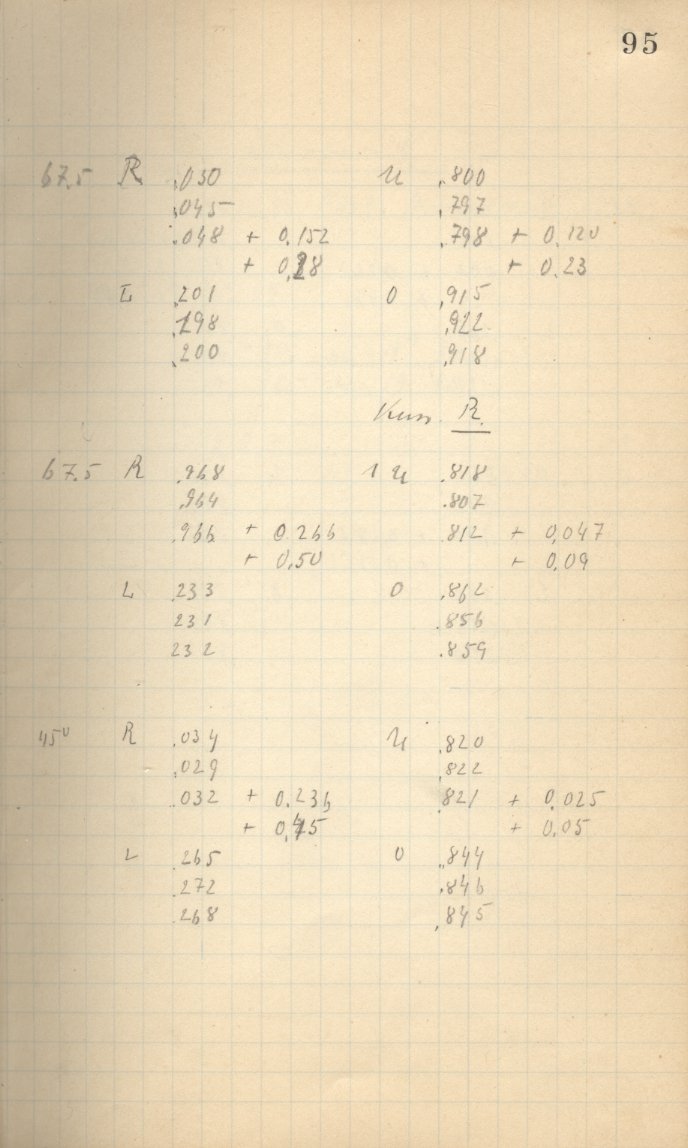 95
67.5 R .030 U .800
.045 .797
.048 + 0.152 .798 + 0.120
+ 0.28 + 0.23
L .201 O .915
.198 .922
.200 .918
R.
67.5 R .968 1 U .818
.964 .807
.966 + 0.266 .812 + 0,047
+ 0,50 + 0,09
L .233 O .862
231 .856
232 .859
45° R .034 U .820
.029 .822
.032 + 0.236 821 + 0.025
+ 0,45 + 0.05
L .265 O .844
.272 .846
.268 .845